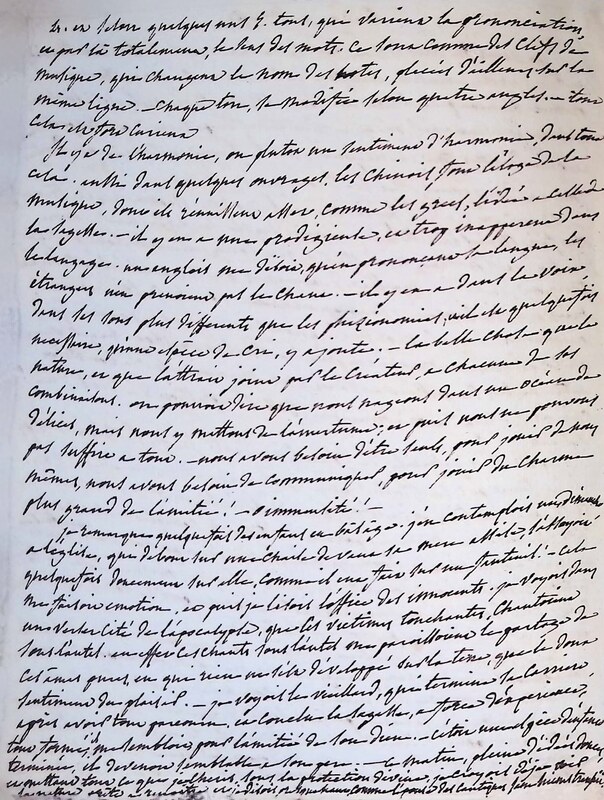 et en selon quelques uns 5. tons, qui varient la prononciation,
et par là totalement, le sens des mots. ce sont comme des clefs de
musique, qui changent le nom des notes, placées d'ailleurs sur la
même ligne. - chaque ton, se modifie selon quatre angles. - tout
cela est fort curieux
Il y a de l'harmonie, ou plutot un sentiment d'harmonie, dans tout
cela. aussi dans quelques ouvrages, les chinois, font l'éloge de la
musique, dont ils réunissent assez, comme les grecs, l'idée a celle de
la sagesse. - il y en a une prodigieuse, et trop inapperçue dans
le langage. un anglois me disoit, qu'en prononçant sa langue, les
étrangers n'en prenoient pas le chant. - il y en a dans la voix,
dans les sons plus differents que les phisionomies, et il est quelquefois
nécessaire, qu'une espèce de cri, y ajoute. - la belle chose que la
nature, et que l'attrait joint par le créateur, a chacune de ses
combinaisons. on pourroit dire que nous nageons dans un océan de
délices, mais nous y mettons de l'amertume; et puis nous ne pouvons
pas suffire a tout. - nous avons besoin d'être seuls, pour jouir de nous
mêmes, nous avons besoin de communiquer, pour jouir du charme
plus grand de l'amitié! - o immensité! -
je remarque quelquefois des enfans en bas age. j'en contemplois un, dimanche
a l'église, qui debout sur une chaise devant sa mere assise, s'appuyoit
quelquefois doucement sur elle, comme il eut fait sur un fauteuil! - cela
me faisoit emotion, et puis je lisois l'office des innocents. je voyois dans
un verset cité de l'apocalypse, que ces victimes touchantes, chantoient
sous l'autel. en effet ces chants sous l'autel me paroissoient le partage de
ces ames pures, en qui rien ne s'est développé sur la terre, que le doux
sentiment du plaisir. - je voyois le vieillard, qui termine sa carriere
après avoir tout parcouru, et conclu la sagesse, a force d'expériences,
tout formé, me sembloit pour l'amitié de son dieu. - cétoit une
terminée, il devenoit semblable a son pere. - ce matin, pleine d'idées douces,
et mettant tout ce que je cheris, sous la protection divine, je croyois déja voir